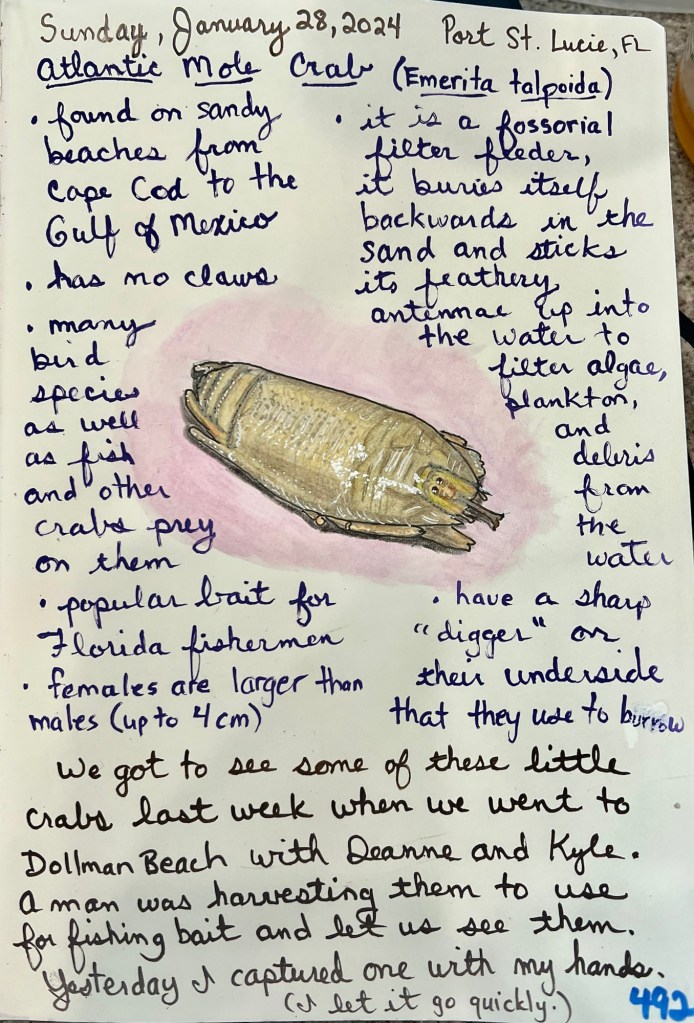 Sunday, January 28, 2024 Port St. Lucie, FL
Atlantic Mole Crab (Emerita talpoida)
• found on sandy
beaches from
Cape Cod to the
Gulf of Mexico
• has no claws
• many
bird
species
as well
as fish
and other
crabs prey
on them
• popular bait for
Florida fishermen
• females are larger than
males (up to 4 cm)
• it is a fossorial
filter feeder,
it buries itself
backwards in the
sand and sticks
its feathery
antennae up into
the water to
filter algae,
plankton,
and
debris
from
the
water
• have a sharp
"digger" on
their underside
that they use to burrow
We got to see some of these little
crabs last week when we went to
Dollman Beach with Deanne and Kyle.
A man was harvesting them to use
for fishing bait and let us see them.
Yesterday I captured one with my hands.
(I let it go quickly.)
492